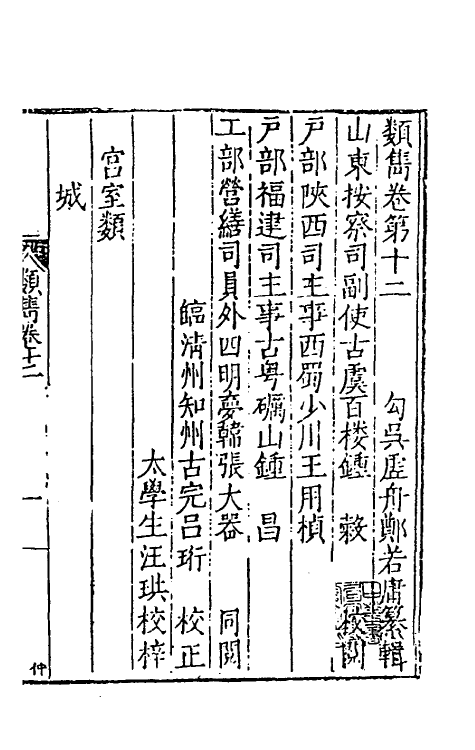 類雋卷第十二　　勾吳虛舟鄭若庸纂輯
山東按察司副使古虞百楼鍾　穀　校閱
戸部陝西司主事西蜀少川王用楨
戸部福建司主事古粤礪山鍾　昌
工部營繕司員外四明夢鶴張大器　同閱
臨淸州知州古完吕珩　校正
太學生汪珙校梓
宫室類
城
類雋卷十二
一
仲